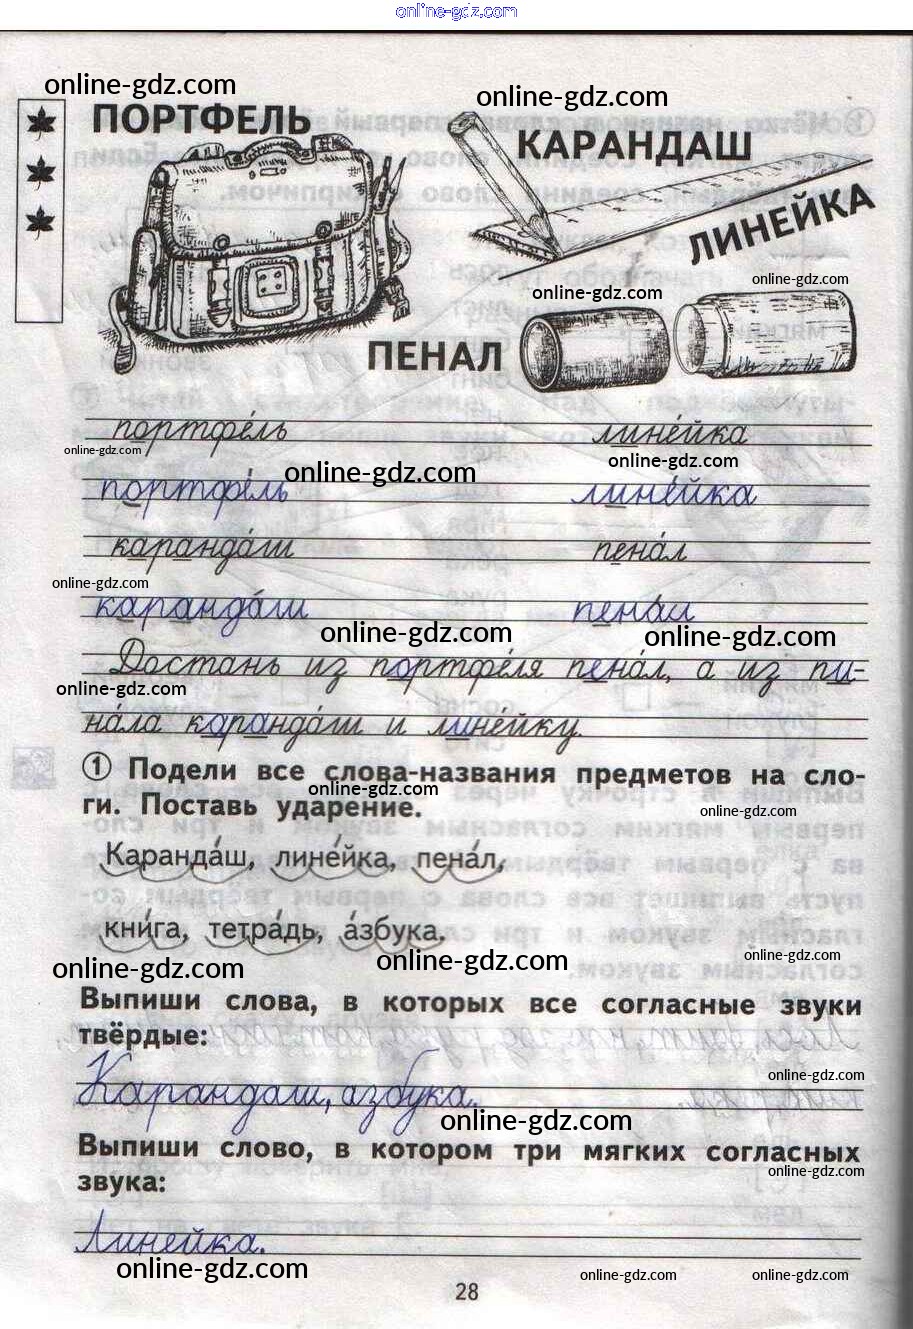 online-gdz.com
online-gdz.com
online-gdz.com
ПОРТФЕЛЬ
КАРАНДАШ
ЛИНЕЙКА
online-gdz.com
online-gdz.com
ПЕНАЛ
портфе́ль лине́йка
online-gdz.com
online-gdz.com
online-gdz.com
портфе́ль лине́йка
каранда́ш пена́л
online-gdz.com
каранда́ш пена́л
online-gdz.com
online-gdz.com
Достань из портфе́ля пена́л, а из пи-
online-gdz.com
на́ла каранда́ш и лине́йку.
1 Подели все слова-названия предметов на сло-
online-gdz.com
ги. Поставь ударение.
online-gdz.com
Каранда́ш, лине́йка, пена́л,
кни́га, тетра́дь, а́збука.
online-gdz.com
online-gdz.com
online-gdz.com
Выпиши слова, в которых все согласные звуки
твёрдые:
online-gdz.com
Карандаш, азбука.
online-gdz.com
Выпиши слово, в котором три мягких согласных
online-gdz.com
звука:
Линейка.
online-gdz.com
online-gdz.com
online-gdz.com
28